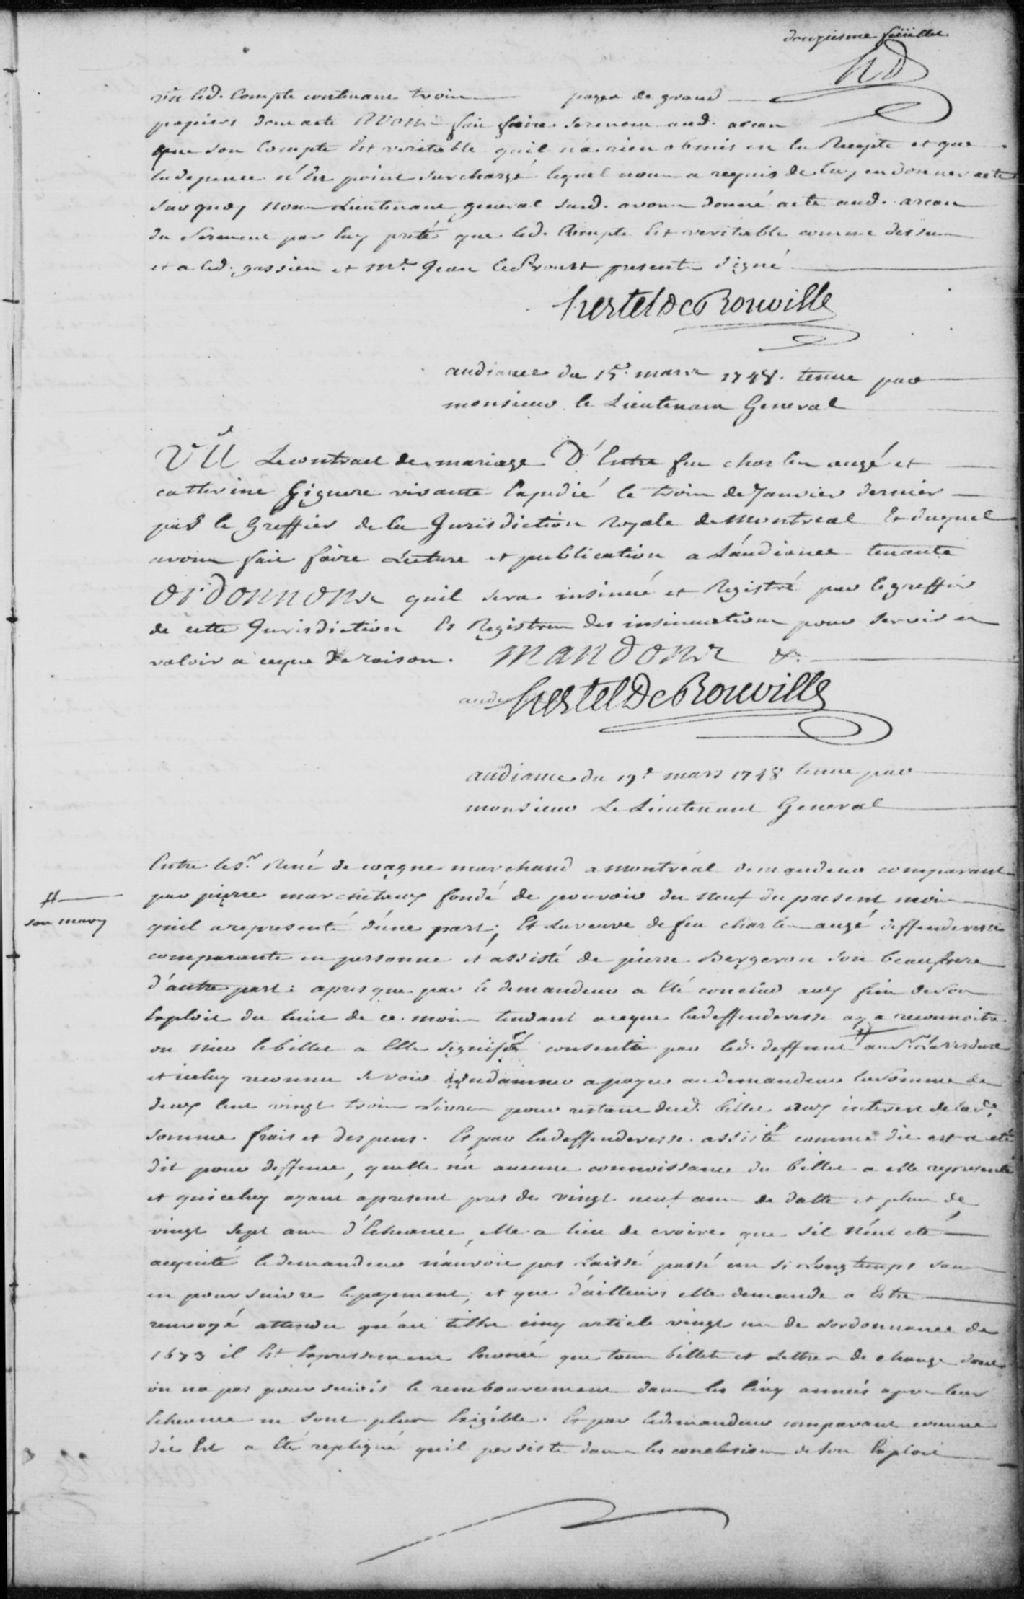 douzieme feüillet
HD
Vu led. Compte contenant trois pages de grand
papiers dont acte Avons fait faire serment aud. arcan
que son Compte Est veritable quil na rien obmis en la Recepte et que
la depense n'Est point surchargé, lequel nous a requis de luy en donner acte
surquoy nous Lieutenant general susd. avons donné acte aud. arcan
du Serment par luy preté que led. Compte Est veritable comme dessus
et a led. et Mr. Jean LeProust present signé
Hertel De Rouville
audiance du 15e. mars 1748. tenue par
monsieur le Lieutenant General
VÛ Le contract de mariage D'Entre feu charles augé et
catherine Giguere vivante Expedié le trois de Janvier dernier
par le Greffier de la Jurisdiction Royale de Montreal Et duquel
avons fait faire Lecture et publication a L'audiance tenante
Ordonnons quil sera insinué et Registré par le greffier
de cette Jurisdiction Es Registres des insinuations pour servir et
valoir a ceque De raison. Mandons &c.
Hertel De Rouville
audiance du 19e mars 1748 tenue par
monsieur Le Lieutenant General
Entre le Sr. René de coagne marchand a montréal demandeur comparant
par pierre marcheteux fondé de pouvoir du Neuf du present mois
quil a representé d'une part; Et La veuve de feu charles augé deffenderesse
comparante en personne et assisté de pierre Bergeron son beaufrere
d'autre part: apres que par le demandeur a Eté conclud aux fins de son
Exploit du huit de ce mois tendant a ceque ladeffenderesse ay a reconnoitre
ou nier le billet a Elle signifié consentie par led. deffunt #
son mary
et iceluy reconnu se voir Condamner a payer au demandeur la somme de
deux Cent vingt trois Livres pour restant dud. billet aux interest de lad.
somme frais et despens. Et par ladeffenderesse assisté comme dit est a eté
dit pour deffense, quelle n'a aucune connoissance du billet a elle representé
et quiceluy ayant apresent pres de vingt neuf ans de datte et plus de
vingt sept ans d'Echeance, elle a lieu de croire que sil n'eut eté
acquité le demandeur n'auroit pas Laissé passé un si Long temps sans
en poursuivre le payement, et que d'ailleurs elle demande a Estre
renvoyé attendu qu'au tittre cinq article vingt un de Lordonnance de
1673 il Est Expressement Enoncé que tous billets et Lettres de change dont
on na pas poursuivis le remboursement dans les cinq années apres leur
Echeance ne sont plus Exigible. Et par ledemandeur comparant comme
dit Est a Eté repliqué quil persiste dans les conclusions de son Exploit